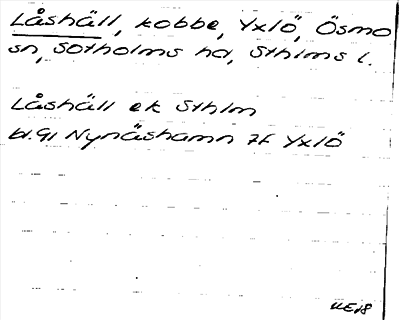 Låshäll, kobbe, Yxlö, Ösmo
sn, Sotholms hd, Sthlms l.
Låshäll ek Sthlm
bl. 91 Nynäshamn 7f Yxlö